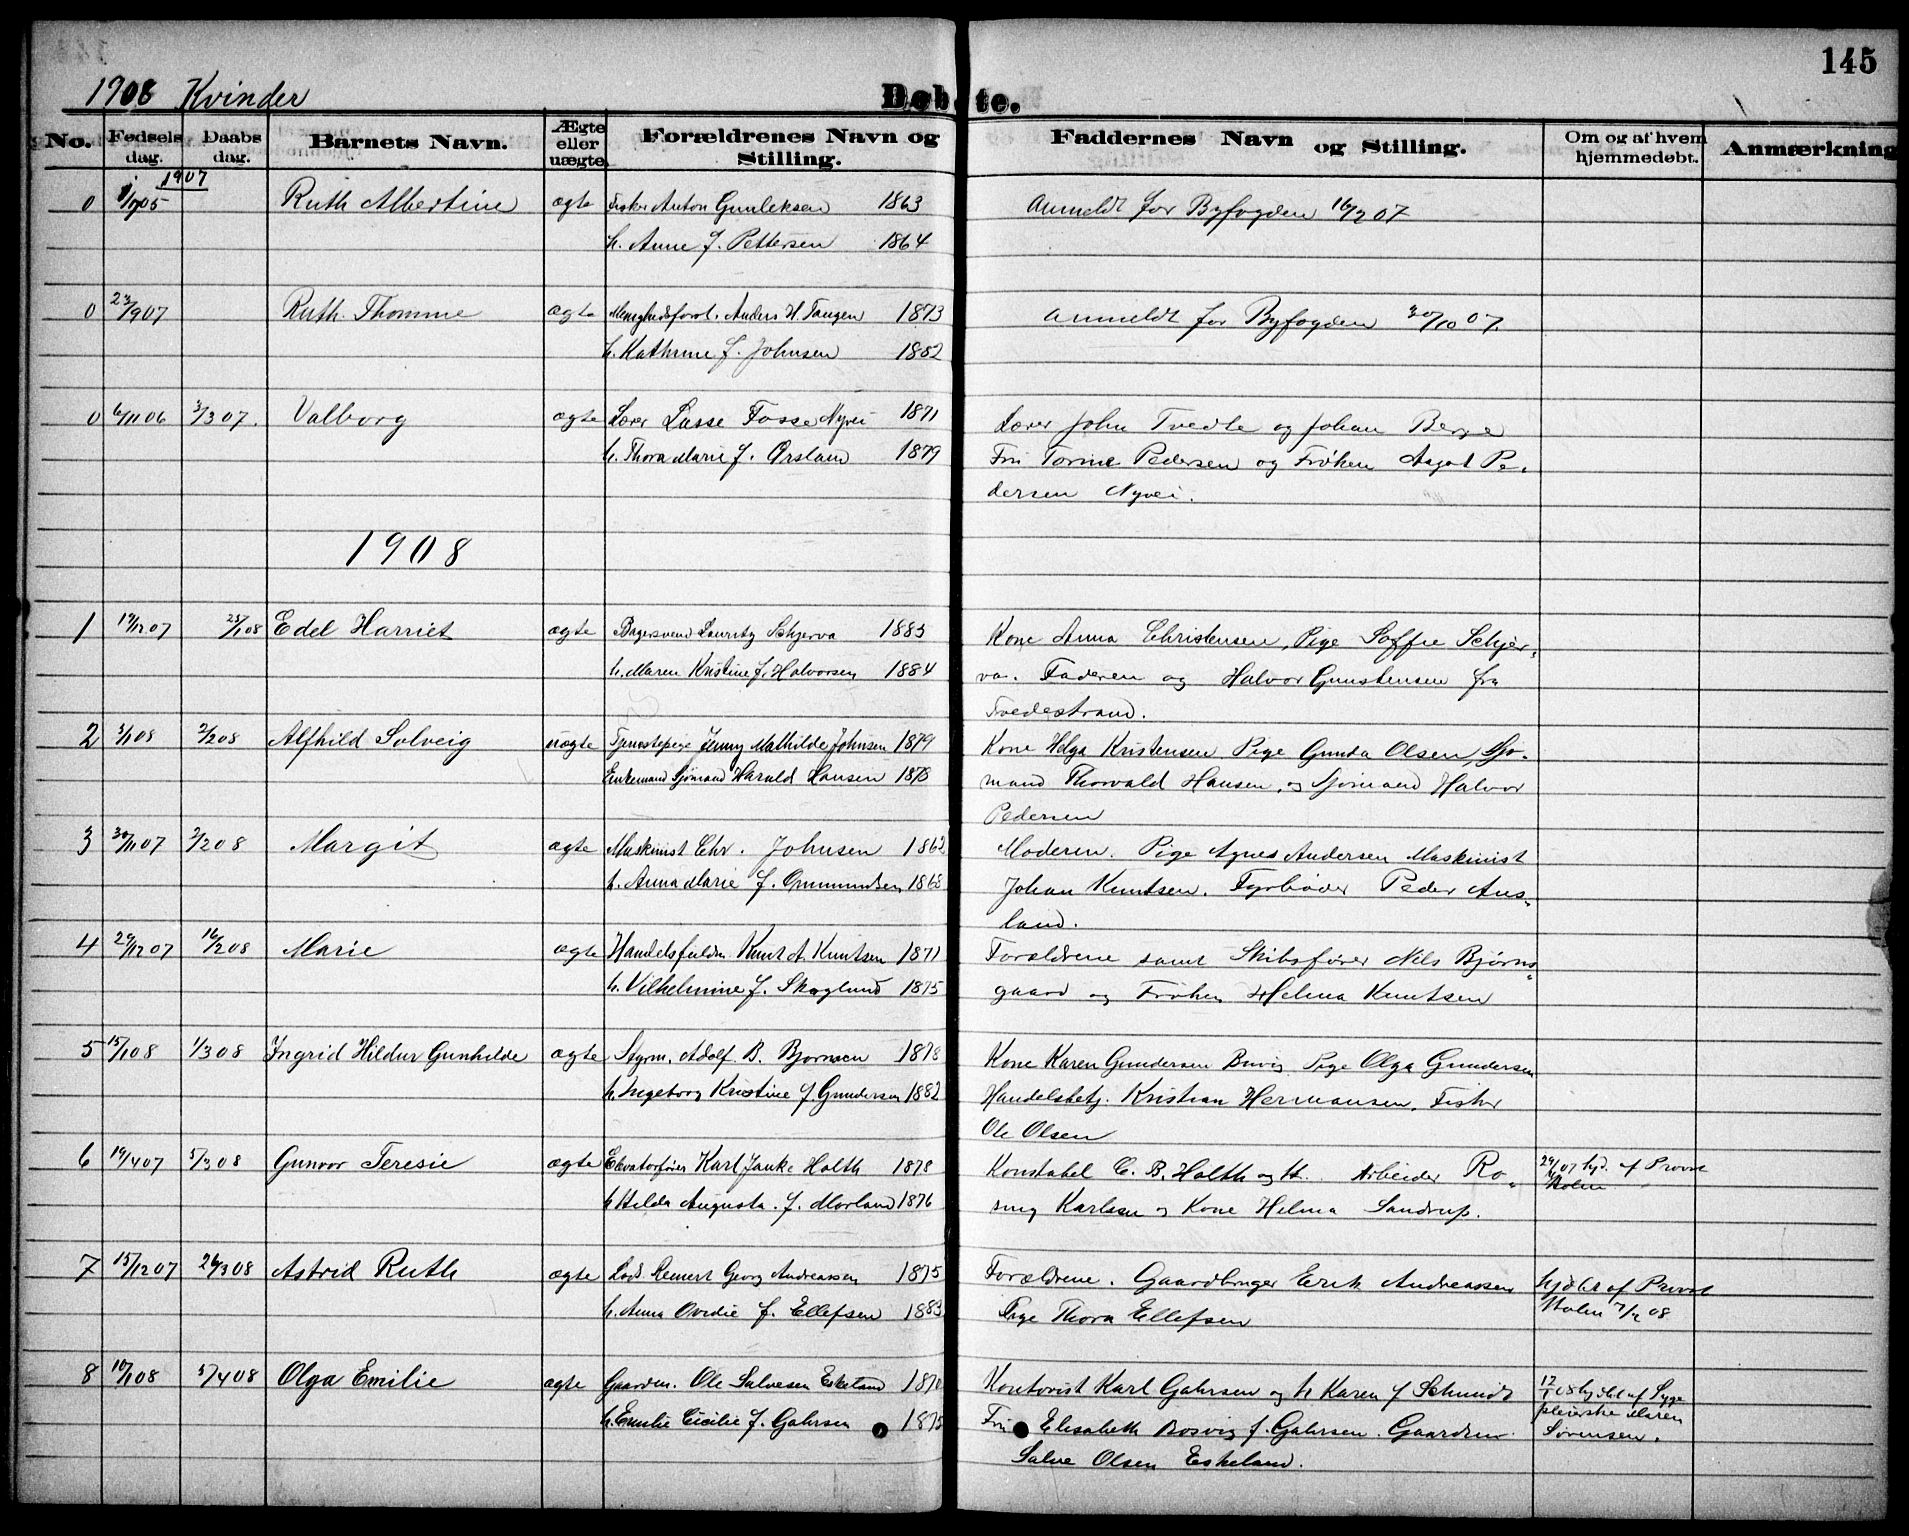 145
1908 Kvinder Døbte.
No. Fødsels dag. Daabs dag. Barnets Navn. Ægte eller uægte Forældrenes Navn og Stilling. Faddernes Navn og Stilling. Om og af hvem hjemmedøbt. Anmærkning
1907
0 Ruth Albertine ægte Fisker Anton Gunleksen 1863 Anmeldt for Byfogden 16/2 07
h. Anne f. Pettersen 1864
0 23/9 07 Ruth Thomine ægte Menighedsforst. Anders H. Tangen 1873 Anmeldt for Byfogden 30/10 07.
h. Kathrine f. Johnsen 1882
0 6/11 06 3/3 07. Valborg ægte Lærer Lasse Fosse Nyvei 1871 Lærer John Tvedte og Johan Berge
h. Thora Marie f. Ørsland 1879 Fru Torine Pedersen og Frøken Aagot Pe-
dersen Nyvei.
1908
1 19/12 07 25/1 08 Edel Harriet ægte Bagersvend Lauritz Schjerva 1883 Kone Anna Christensen, Pige Soffie Schjer-
h. Maren Kristine f. Halvorsen 1884 va. Faderen og Halvor Gunstensen fra
Tvedestrand.
2 3/1 08 2/2 08 Alfhild Solveig uægte Tjenestepige Jenny Mathilde Johnsen 1879 Kone Helga Kristensen Pige Gunda Olsen, Sjø-
Enkemand Sjømand Harald Hansen 1878 mand Thorvald Hansen, og Sjømand Halvor
Pedersen
3 30/11 07 2/2 08 Margit ægte Maskinist Chr. Johnsen 1862 Moderen. Pige Agnes Andersen Maskinist
h. Anna Marie f. Gunmundsen 1868 Johan Knutsen. Fyrbøder Peder Aus-
land.
4 29/12 07 16/2 08 Marie ægte Handelsfuldm. Knut A. Knutsen 1871 Forældrene samt Skibsfører Nils Bjørns-
h. Vilhelmine f. Skoglund 1875 gaard og Frøken Helma Knutsen
5 15/1 08 1/3 08 Ingrid Hildur Gunhilde ægte Styrm. Adolf B. Bjornsen 1878 Kone Karen Gundersen Buvig Pige Olga Gundersen
h. Ingeborg Kristine f Gundersen 1882 Handelsbetj. Kristian Hermansen. Fisker
Ole Olsen
6 19/4 07 5/3 08 Gunvor Teresie ægte Elevatorfører Karl Janke Holth 1878 Konstabel C. B. Holth og H. Arbeider Ro- 29/4 07 hjd. af Provst
h Hilda Augusta f. Morland 1876 sing Karlsen og Kone Helma Sandrup. Holm
7 15/12 07 26/3 08 Astrid Ruth ægte Lods Reinert Georg Andreassen 1875 Forældrene. Gaardbruger Erik Andreassen hjdbt af Provst
h. Anna Ovidie f. Ellefsen 1883 Pige Thora Ellefsen Holm 7/2 08
8 10/1 08 5/4 08 Olga Emilie ægte Gaardm. Ole Salvesen Eskeland Kontorist Karl Gahrsen og h Karen f Schmidt 12/1 08 hjdbt af Syge
h. Emilie Cecilie f. Gahrsen 1875 Fru Elisabeth Bosvig f. Gahrsen. Gaardm. pleierske Maren
Salve Olsen Eskeland. Sørensen.